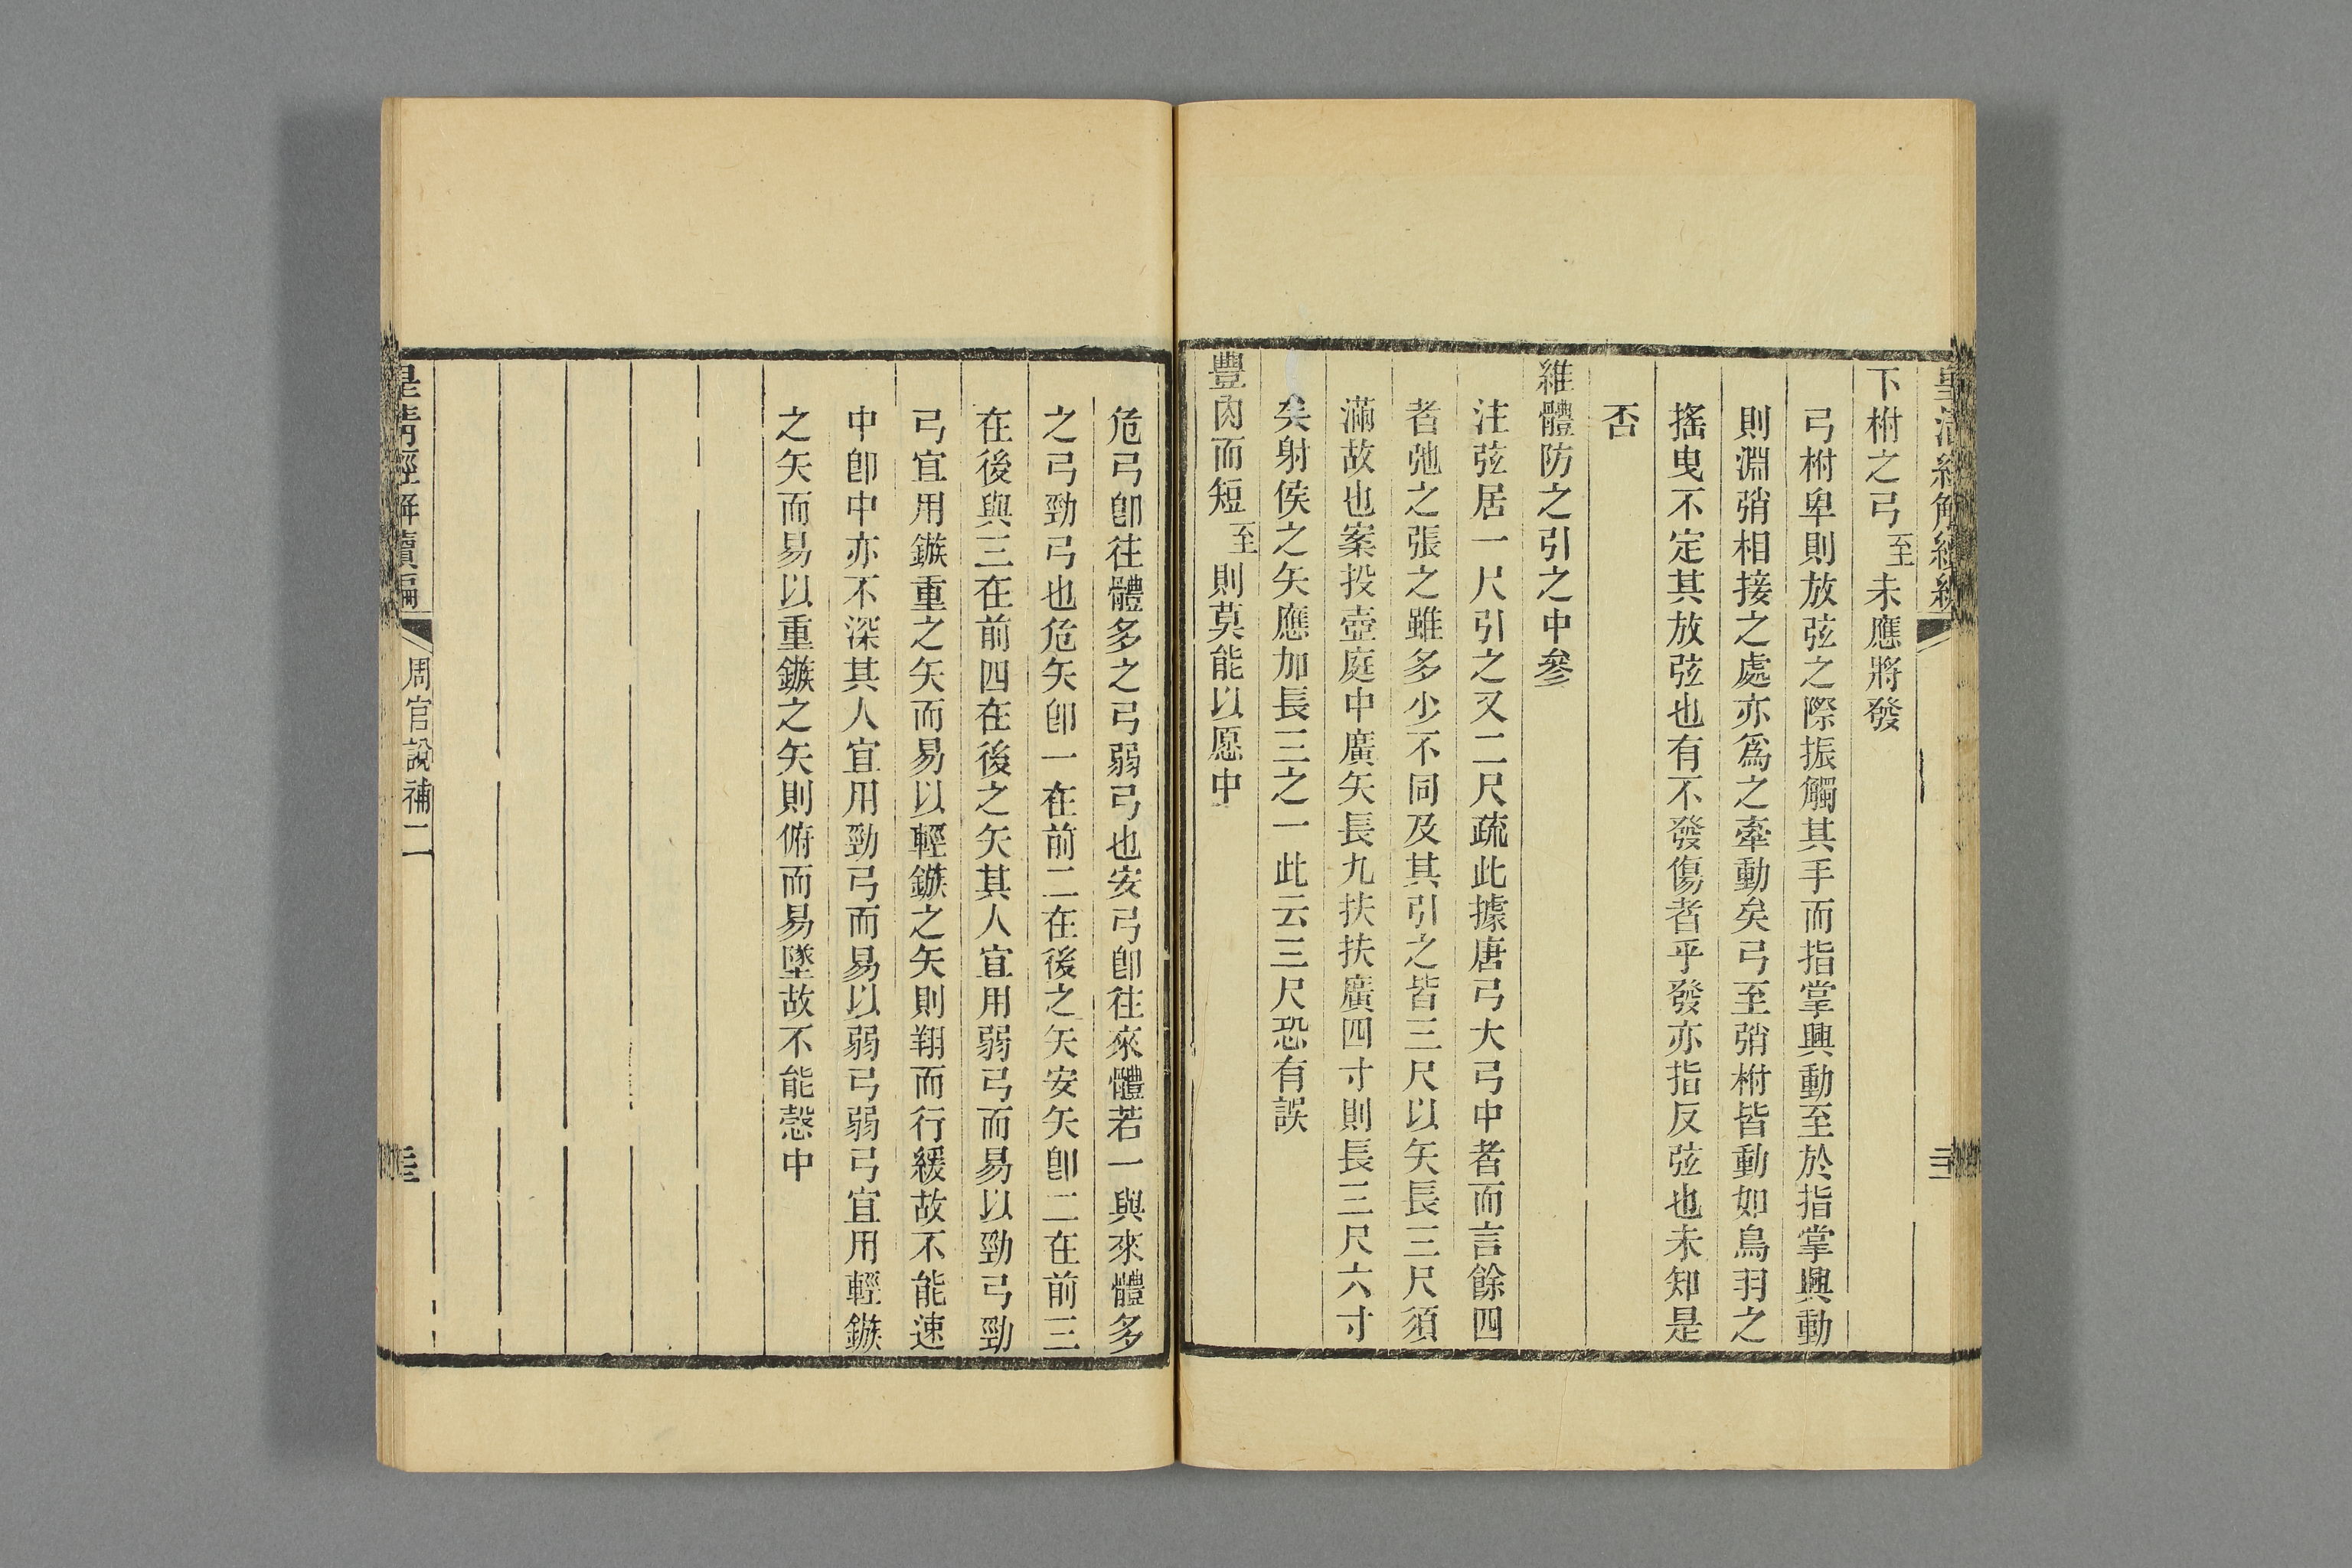 皇清經解續編
下柎之弓至未應將發
弓柎卑則放弦之際振觸其手而指掌興動至於指掌興動
則淵弰相接之處亦爲之牽動矣弓至弰柎皆動如鳥羽之
搖曳不定其放弦也有不發傷者乎發亦指反弦也未知是
否
維體防之引之中參
注弦居一尺引之又二尺疏此據唐弓大弓中者而言餘四
者弛之張之雖多少不同及其引之皆三尺以矢長三尺須
滿故也案投壺庭中廣矢長九扶扶廣四寸則長三尺六寸
矣射侯之矢應加長三之一此云三尺恐有誤
豐肉而短至則莫能以愿中
危弓卽往體多之弓弱弓也安弓卽往來體若一與來體多
之弓勁弓也危矢卽一在前二在後之矢安矢卽二在前三
在後與三在前四在後之矢其人宜用弱弓而易以勁弓勁
弓宜用鏃重之矢而易以輕鏃之矢則翔而行緩故不能速
中卽中亦不深其人宜用勁弓而易以弱弓弱弓宜用輕鏃
之矢而易以重鏃之矢則俯而易墜故不能愨中
皇清經解續編
周官說補二